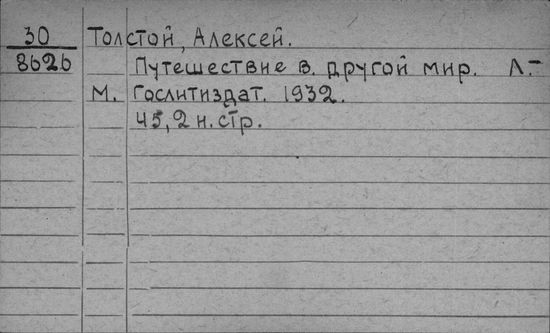 30 Толстой, Алексей.
8626 Путешествие в другой мир. Л.-
М. Гослитиздат. 1932.
45, 2 н. стр.